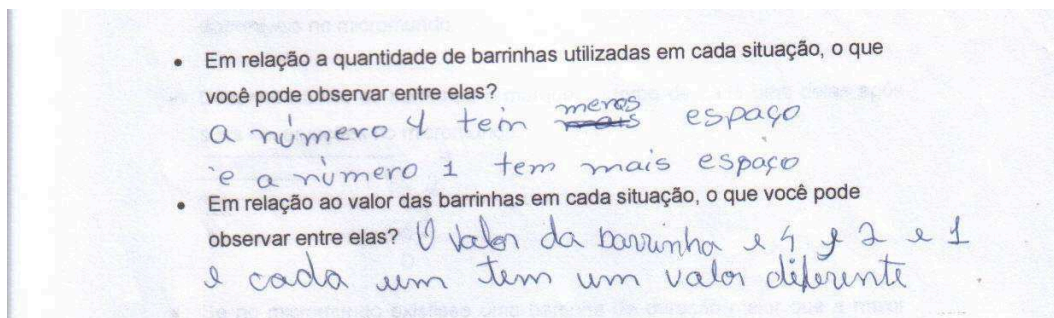 • Em relação a quantidade de barrinhas utilizadas em cada situação, o que
você pode observar entre elas?
a número 4 tein menos mais espaço
e a número 1 tem mais espaço
• Em relação ao valor das barrinhas em cada situação, o que você pode
observar entre elas? O valor da barrinha e 4 e 2 e 1
e cada um tem um valor diferente